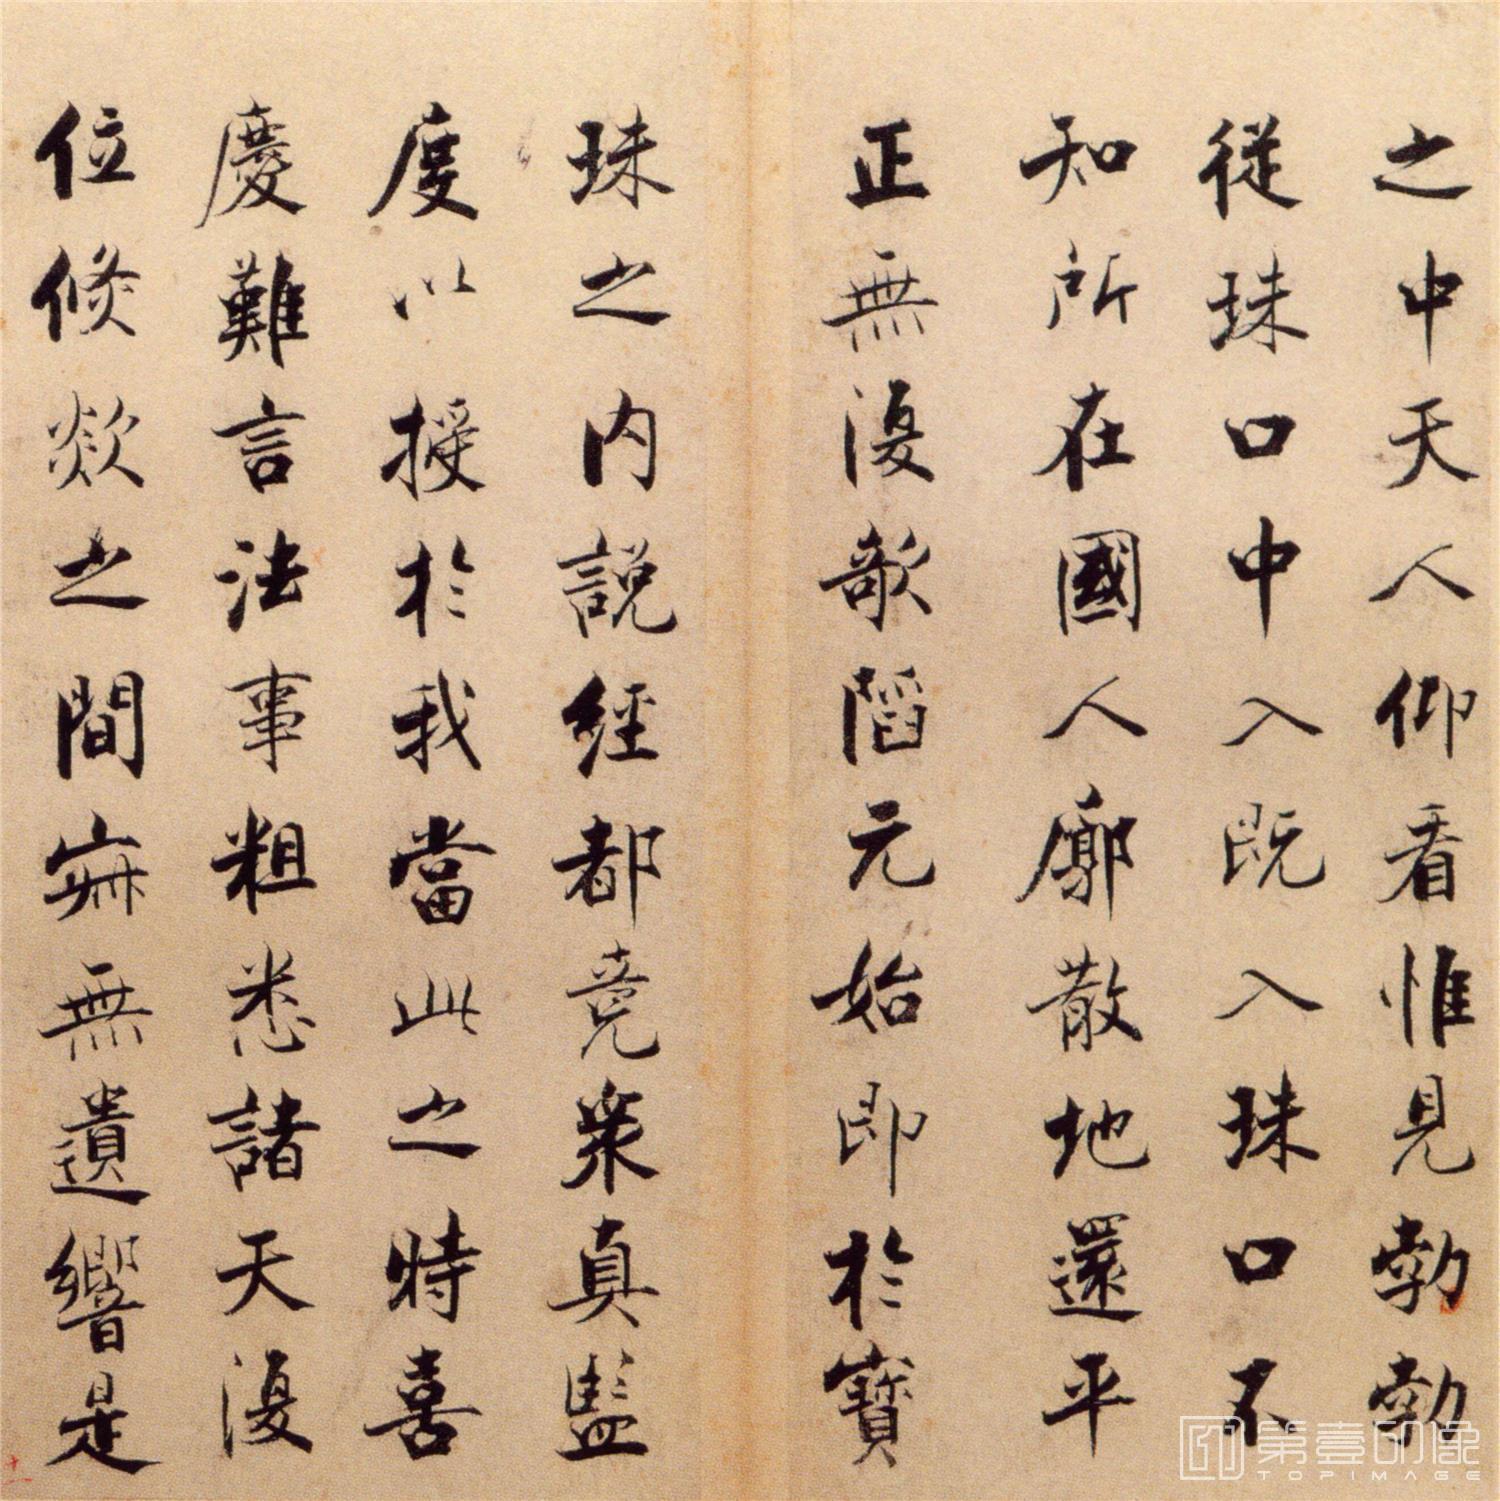 之中天人仰看惟見勃勃
從珠口中入既入珠口不
知所在國人廓散地還平
正無復欹陷元始即於寶
珠之内說經都竟衆真監
度以授於我當此之時喜
慶難言法事粗悉諸天復
位倐欻之間寂無遺響是
第壹印像
TOPIMAGE